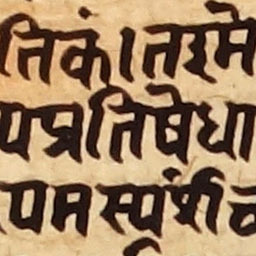 तिकं।तरमे
पप्रतिषेधा
पमस्पृंशी